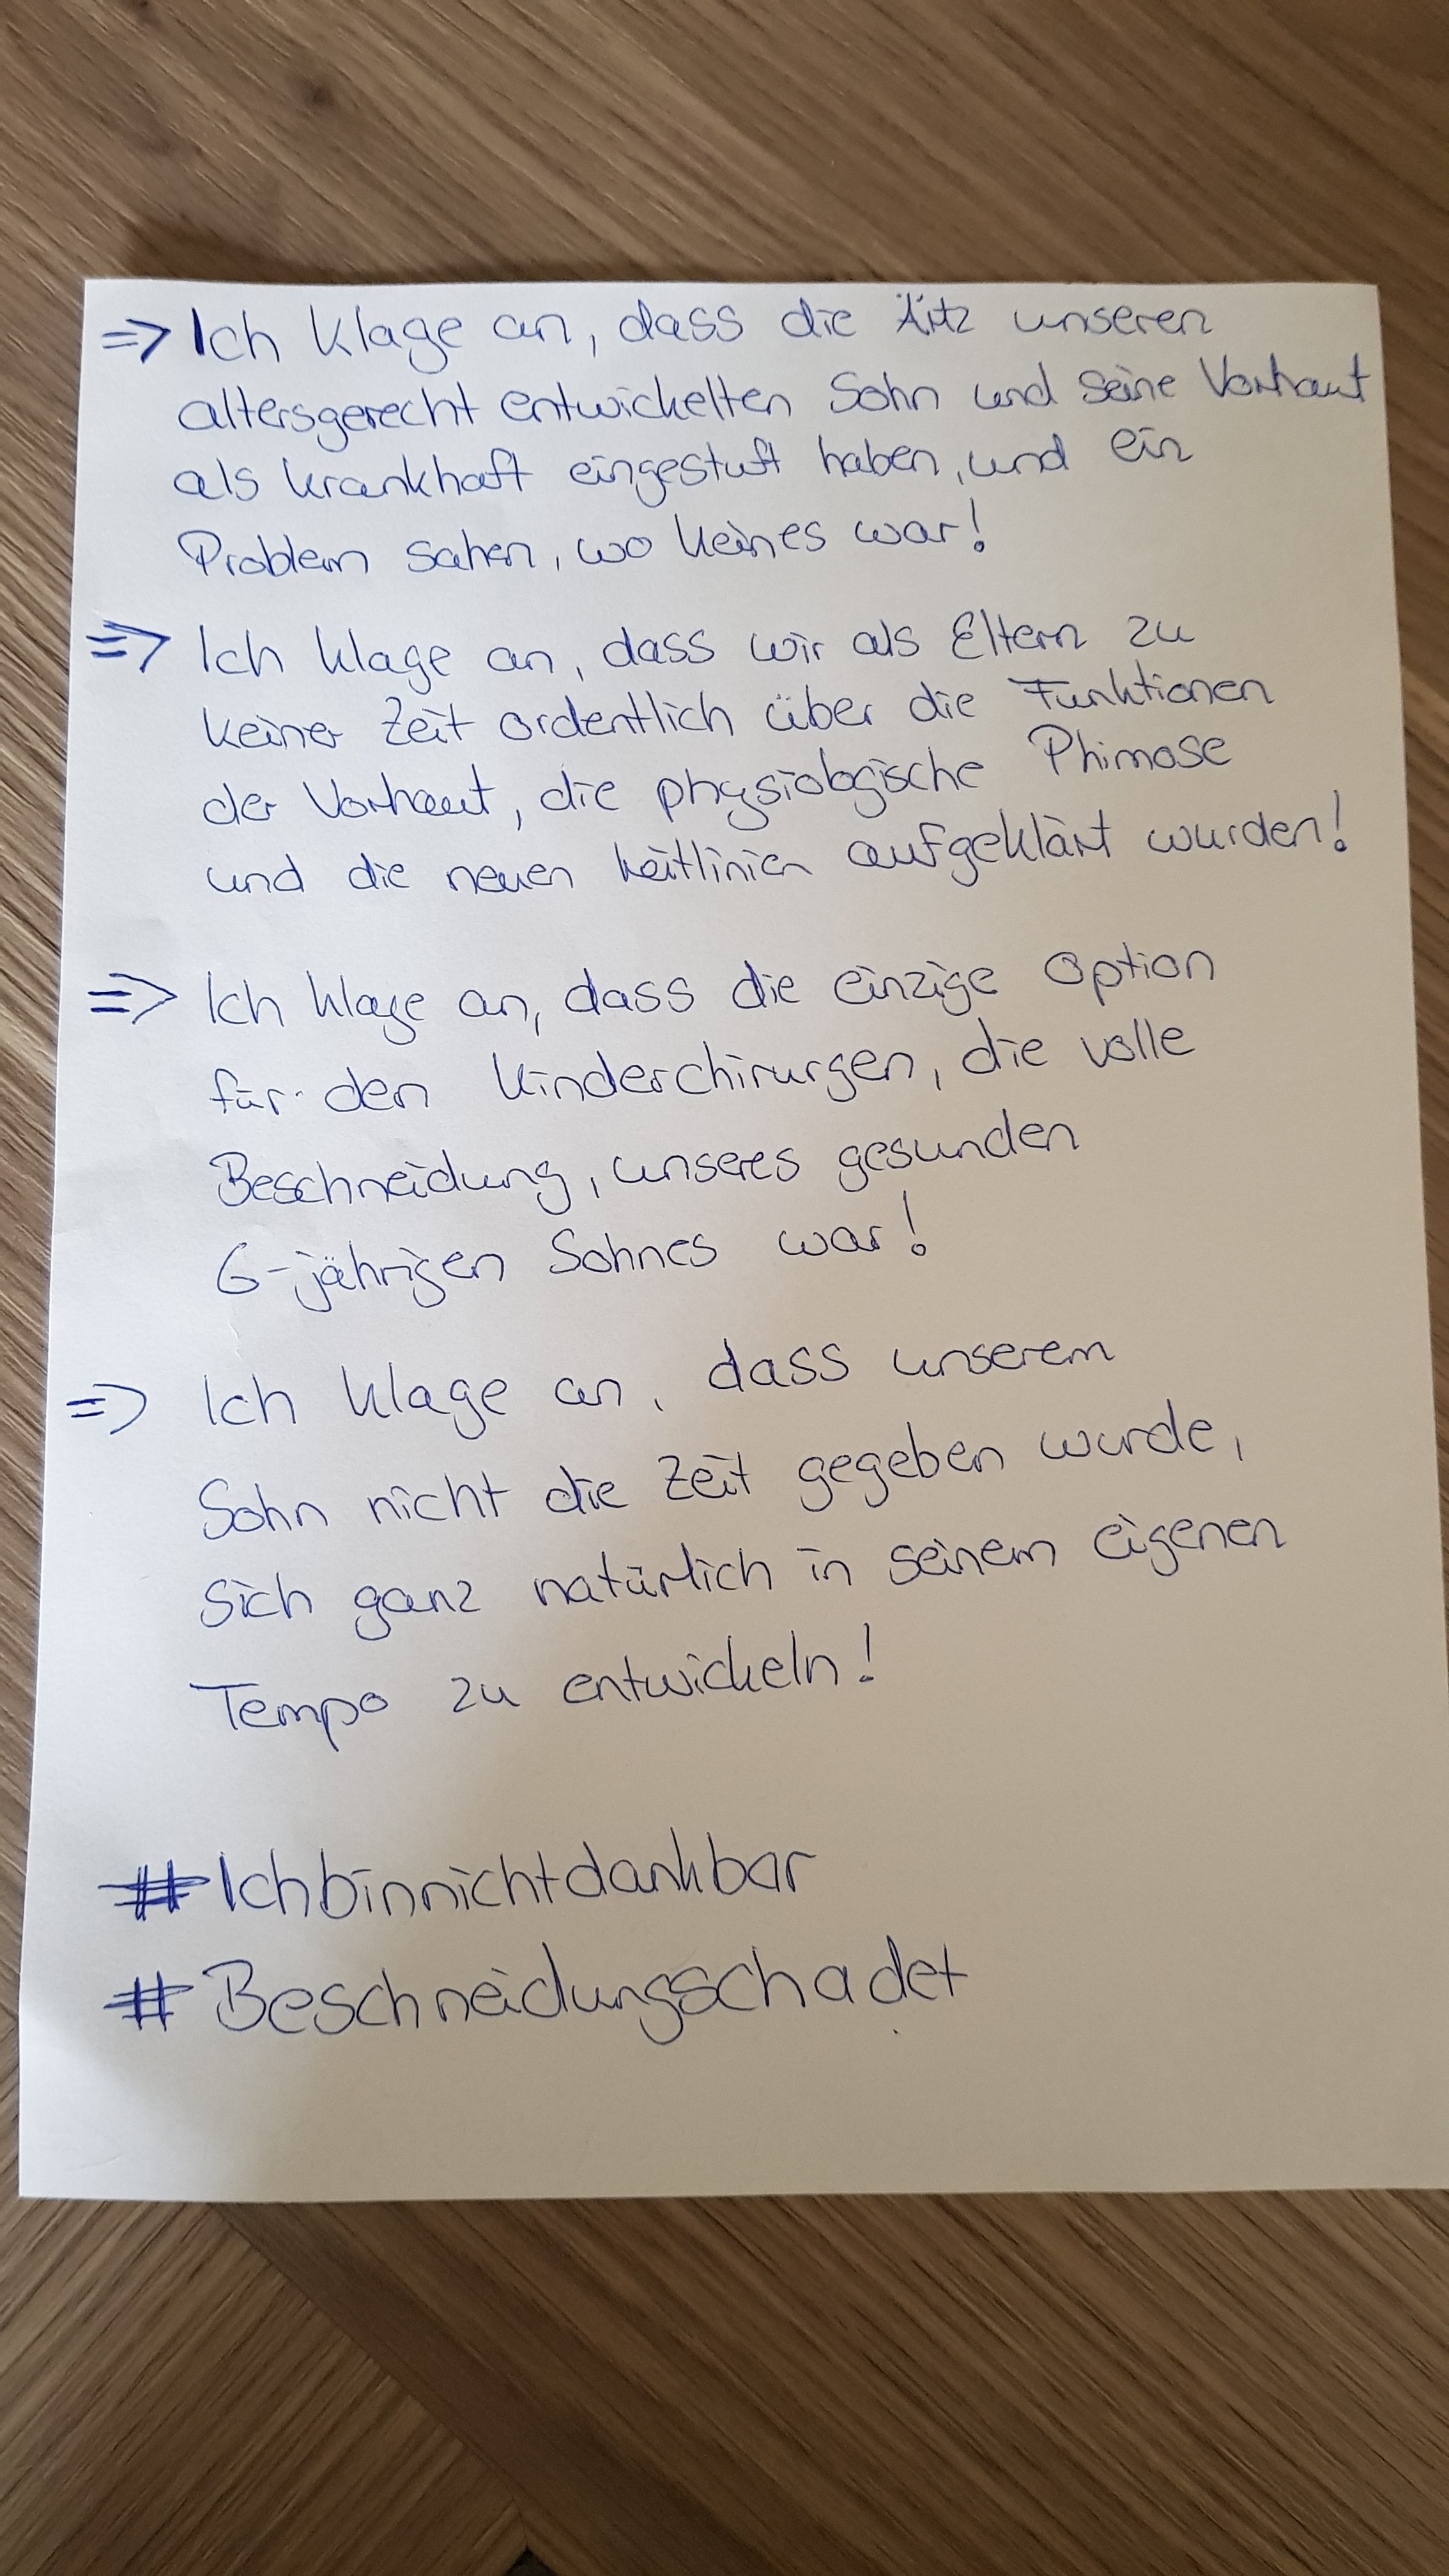 => Ich klage an, dass die Ärtz unseren
altersgerecht entwickelten Sohn und seine Vorhaut
als krankhaft eingestuft haben, und ein
Problem sahen, wo keines war!
=> Ich klage an, dass wir als Eltern zu
keiner Zeit ordentlich über die Funktionen
der Vorhaut, die physiologische Phimose
und die neuen Leitlinien aufgeklärt wurden!
=> Ich klage an, dass die einzige Option
für den Kinderchirurgen, die volle
Beschneidung, unseres gesunden
6-jährigen Sohnes war!
=> Ich klage an, dass unserem
Sohn nicht die Zeit gegeben wurde,
sich ganz natürlich in seinem eigenen
Tempo zu entwickeln!
#Ichbinnichtdankbar
#Beschneidungschadet